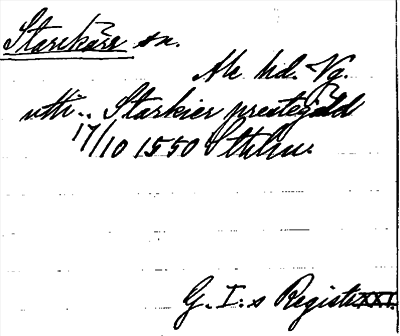 Starekärs sn.
Ale hd. Vg.
utti.. Starkier prestegäld
17/10 1550 Sthlm.
G. I:s Registr. XXI.